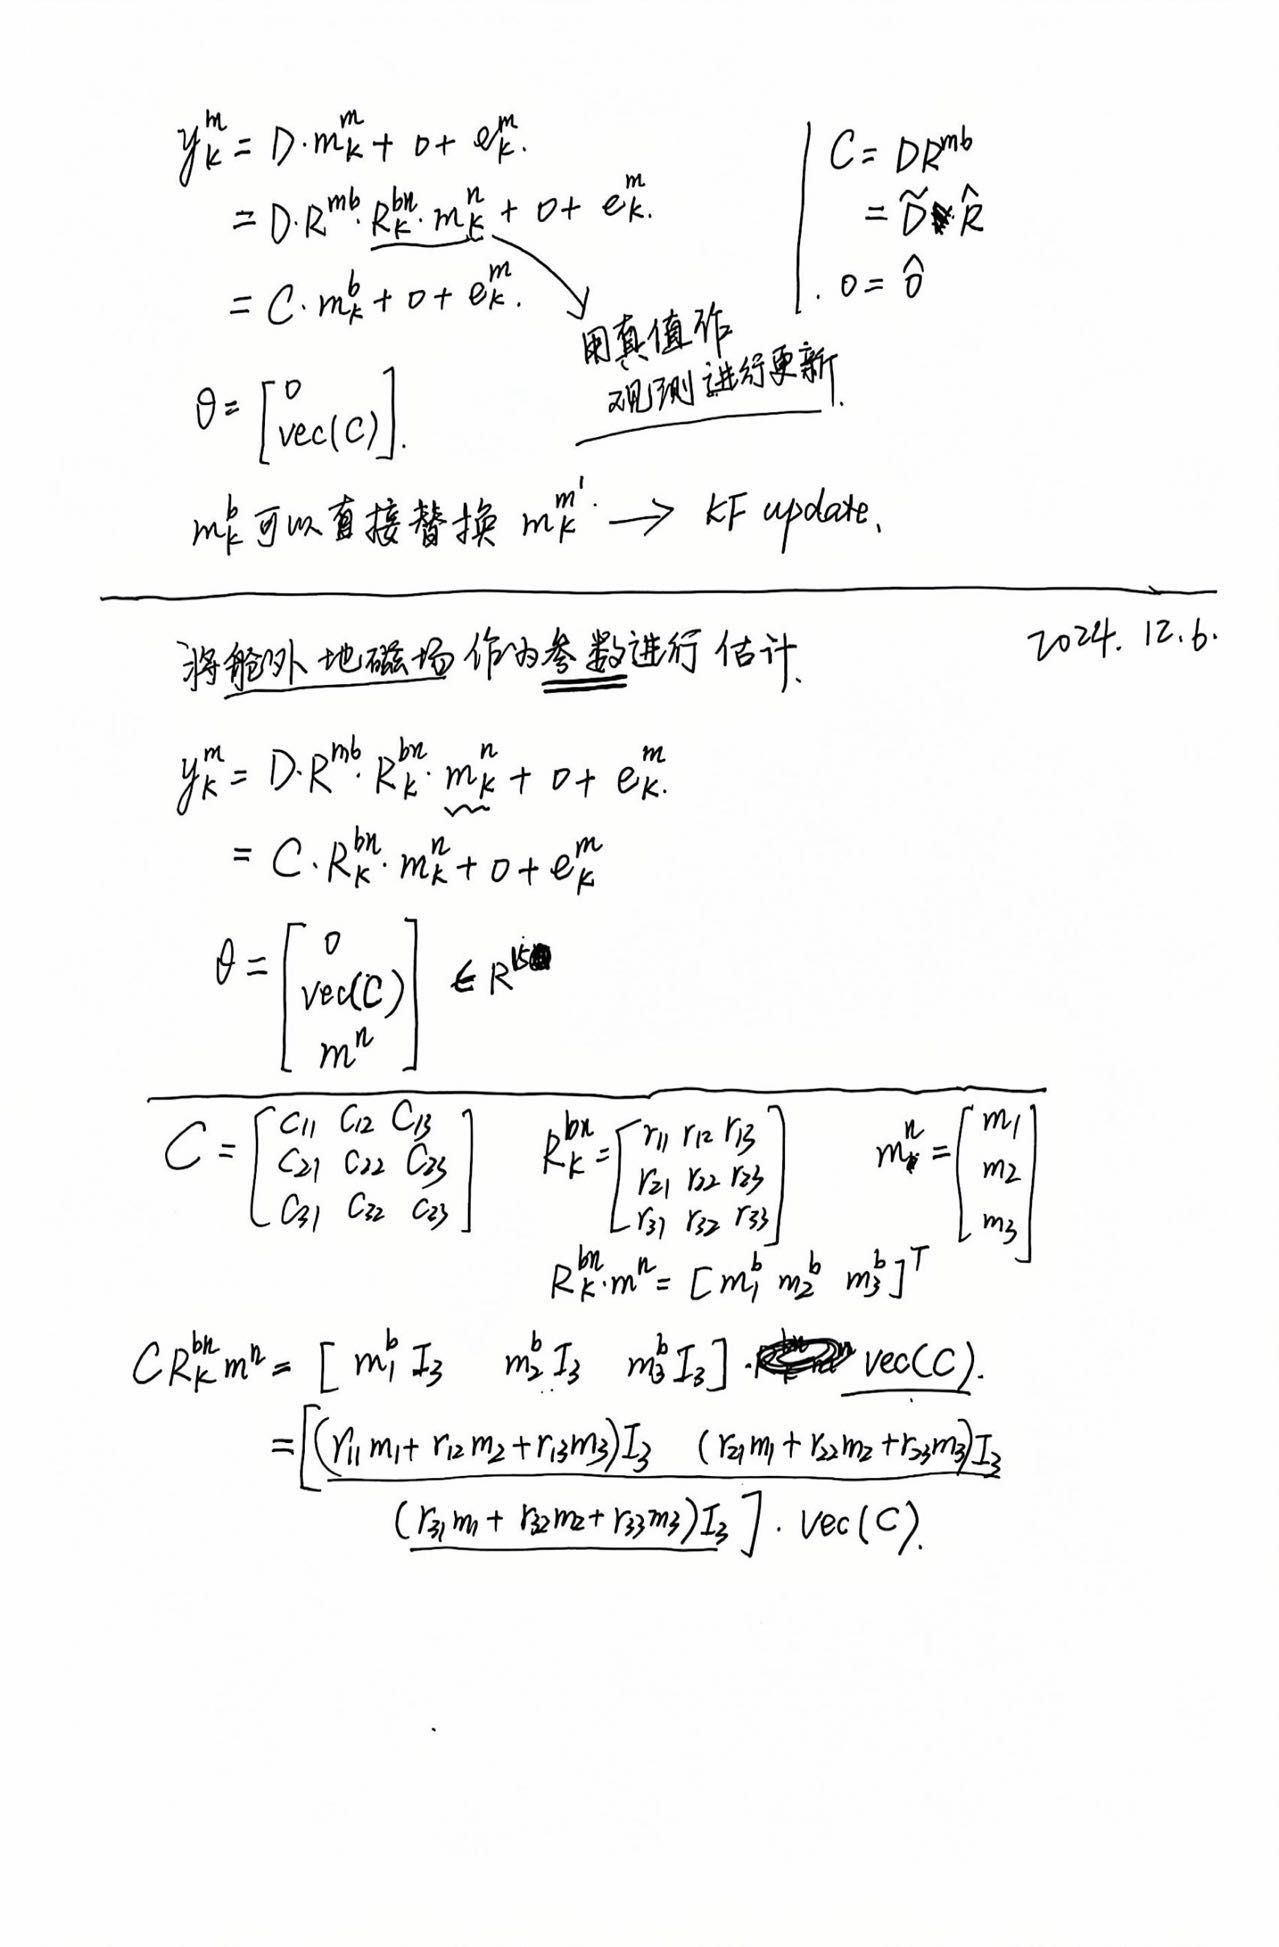 y_k^m = D·m_k^m + o + e_k^m.
= D·R^{mb}·R_k^{bn}·m_k^n + o + e_k^m.
= C·m_k^b + o + e_k^m.
C = DR^{mb}
= D̃ R̂
. o = ô
用真值作
观测进行更新.
θ = [o vec(C)].
m_k^b 可以直接替换 m_k^{m'}. → KF update.
2024. 12. 6.
将舱外地磁场作为参数进行估计.
y_k^m = D·R^{mb}·R_k^{bn}·m_k^n + o + e_k^m.
= C·R_k^{bn}·m_k^n + o + e_k^m
θ = [o vec(C) m^n] ∈ R^{15}
C = [C11 C12 C13 R_k^{bn} = [r11 r12 r13 m^n = [m1
C21 C22 C23 r21 r22 r23 m2
C31 C32 C23] r31 r32 r33] m3]
R_k^{bn}·m^n = [m_1^b m_2^b m_3^b]^T
CR_k^{bn}m^n = [m_1^b I_3 m_2^b I_3 m_3^b I_3]· vec(C).
= [(r11m1 + r12m2 + r13m3)I_3 (r21m1 + r22m2 + r23m3)I_3
(r31m1 + r32m2 + r33m3)I_3]· vec(C).